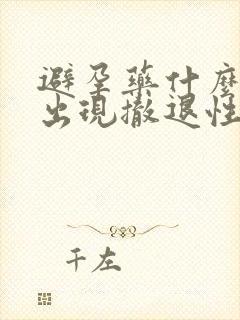 避孕藥什麼
出現撤退性
千左